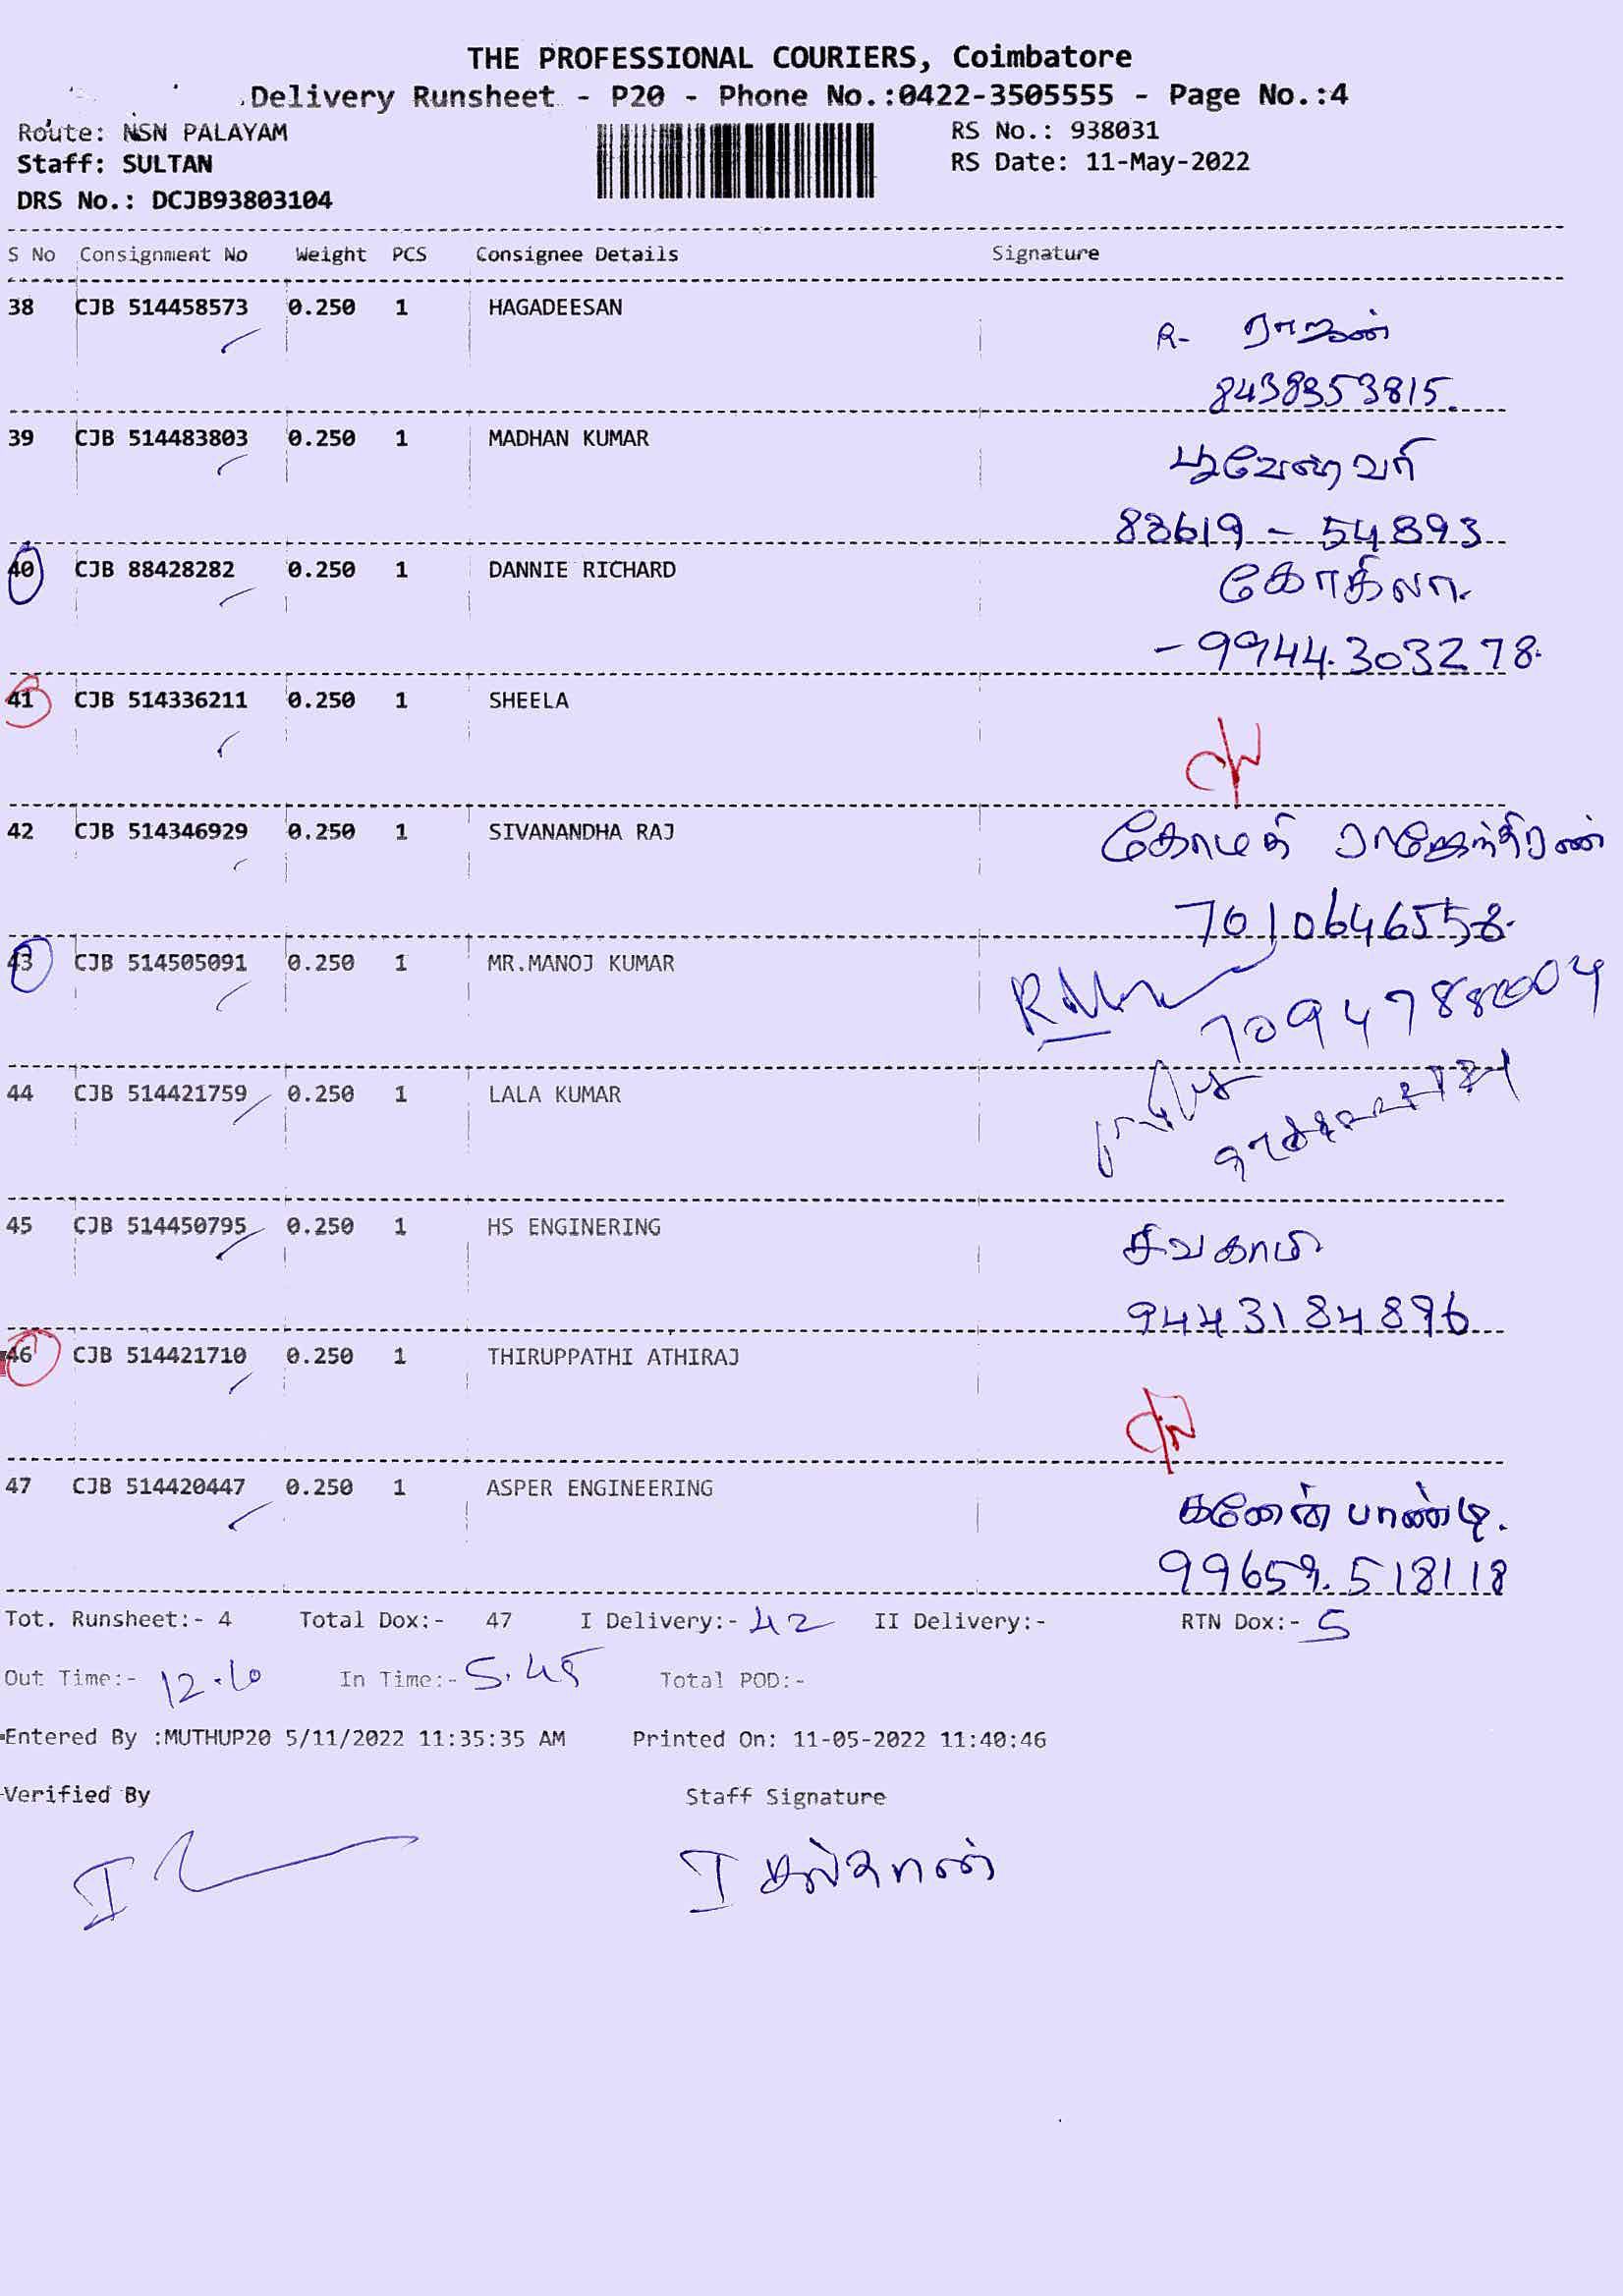 THE PROFESSIONAL COURIERS, Coimbatore
Delivery Runsheet - P20 - Phone No.:0422-3505555 - Page No.:4
Route: NSN PALAYAM
RS No.: 938031
Staff: SULTAN
RS Date: 11-May-2022
DRS No.: DCJB93803104
S No Consignment No Weight PCS Consignee Details Signature
38 CJB 514458573 0.250 1 HAGADEESAN
R- ராஜன்
8438353815.
39 CJB 514483803 0.250 1 MADHAN KUMAR
88619 - 54893
40 CJB 88428282 0.250 1 DANNIE RICHARD
கோகிலா.
- 9944303278.
41 CJB 514336211 0.250 1 SHEELA
42 CJB 514346929 0.250 1 SIVANANDHA RAJ
கோமதி ராஜேந்திரன்
7010646558.
43 CJB 514505091 0.250 1 MR.MANOJ KUMAR
44 CJB 514421759 0.250 1 LALA KUMAR
45 CJB 514450795 0.250 1 HS ENGINERING
சிவகாமி
9443184896
46 CJB 514421710 0.250 1 THIRUPPATHI ATHIRAJ
47 CJB 514420447 0.250 1 ASPER ENGINEERING
பாண்டி.
Tot. Runsheet:- 4 Total Dox:- 47 I Delivery:- 42 II Delivery:- RTN Dox:- 5
Out Time:- 12.10 In Time:- 5.45 Total POD:-
Entered By :MUTHUP20 5/11/2022 11:35:35 AM Printed On: 11-05-2022 11:40:46
Verified By Staff Signature
I சுல்தான்